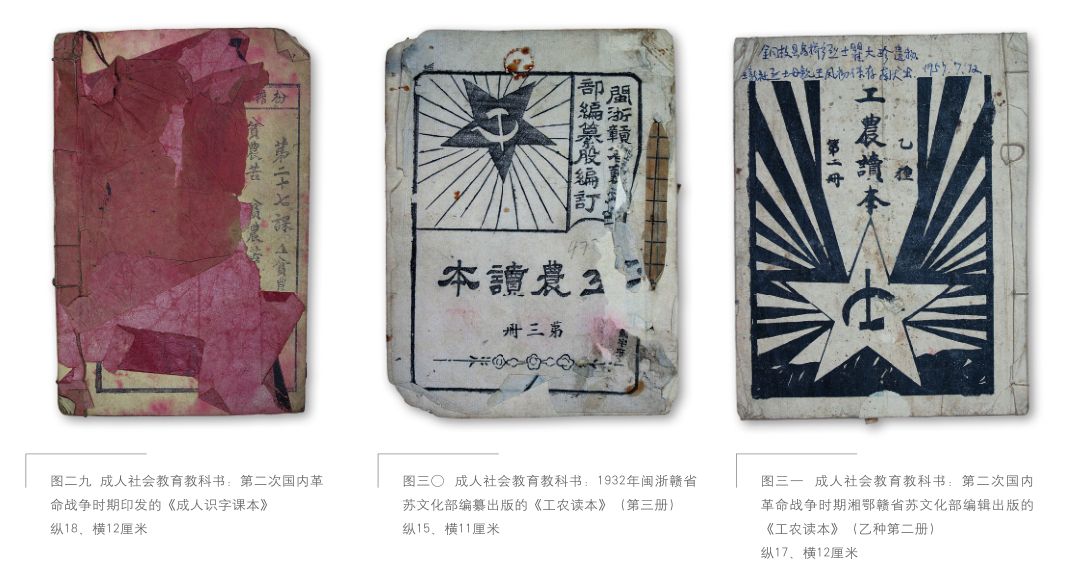 第二十七课
貧農苦 貧農苦
閩浙贛省
部編纂股編訂
工農讀本
第三册
475
1957.7.12
工農讀本
乙種
第二册
图二九 成人社会教育教科书：第二次国内革
命战争时期印发的《成人识字课本》
纵18、横12厘米
图三〇 成人社会教育教科书：1932年闽浙赣省
苏文化部编纂出版的《工农读本》（第三册）
纵15、横11厘米
图三一 成人社会教育教科书：第二次国内
革命战争时期湘鄂赣省苏文化部编辑出版的
《工农读本》（乙种第二册）
纵17、横12厘米